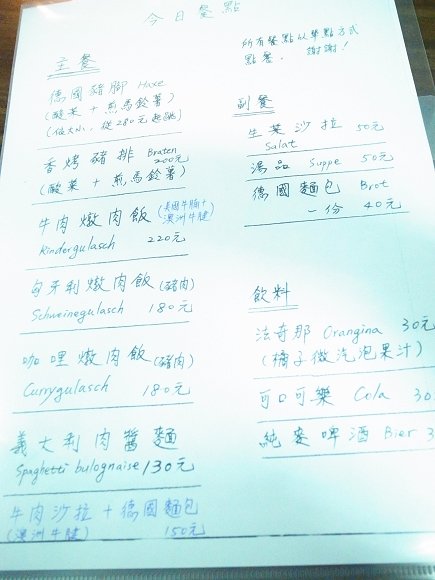 今日餐點
所有餐點以單點方式
點餐. 謝謝!
主餐
德國豬腳 Haxe
(酸菜+煎馬鈴薯)
(依大小, 從280元起跳)
香烤豬排 Braten
200元
(酸菜+煎馬鈴薯)
牛肉燉肉飯 (美國牛腩+
澳洲牛腱)
Rindergulasch 220元
匈牙利燉肉飯(豬肉)
Schweinegulasch 180元
咖哩燉肉飯(豬肉)
Currygulasch 180元
義大利肉醬麵
Spaghetti bulognaise 130元
牛肉沙拉+德國麵包
(澳洲牛腱) 150元
副餐
生菜沙拉 50元
Salat
湯品 Suppe 50元
德國麵包 Brot
一份 40元
飲料
法奇那 Orangina 30元
(橘子微汽泡果汁)
可口可樂 Cola 30
純麥啤酒 Bier 3